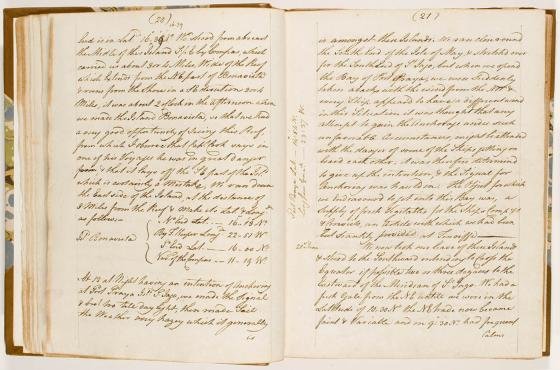 (20)
led is in Lat.
We Steed from abreast
the Middle of the Island S.b.E by Compass, which
carried us about 3 or 4 Miles Wide of the Reef
which Extends from the NE part of Bonavista
& runs from the Shore in a SE direction 3 or 4
Miles, it was about 2 oClock in the afternoon when
we made the Island Bonavista, so that we had
a very good oppertunity of Seeing this Reef,
from which I observe that Capt. Cook says in
one of his Voyages he was in great danger
from & that it lays off the SE part of the Isld.
which is certainly a Mistake. We ran down
the East side of the Island, at the distance of
4 Miles from the Reef & make its Lat. & Long.
as follows
Isd. Bonavista
No. End Lat.
By Time keeper Longd. 22..51 W
So. End Lat. 16..00 No.
Var. of the Compass 11..13 W
At 12 at Night having an intention of Anchoring
at Port Praya Isd. St. Iago, we made the Signal
& bro't too till day light, then made Sail
the Weather very hazey which it generally
is
(21)
is amongst these Islands. We ran close round
the South End of the Isle of May, & Stretched over
for the South End of St. Iago, but when we opend
the Bay of Port Praya, we were Suddenly
taken aback with the wind from the
every Ship appeard to have a different wind
in this Situation it was thought that any
attempt to gain the Anchorage under such
unfavorable Circumstances might be attended
with the danger of some of the Ships getting on
board each other, it was therefore determined
to give up the intention, & the Signal for
Anchoring was hauld in. The Object for which
we endeavoured to get into this Bay, was, a
Supply of fresh Vegetables for the Ships Companys
& Convicts, an Article with which we had been
but Scantily provided at Teneriffe.
20th. June
We now took our leave of these Islands
& Steerd to the Southward intending to Cross the
Equator if possible two or three degrees to the
Eastward of the Meridian of St. Iago. We had a
fresh Gale from the NE untill we were in the
Latitude of 10..30 No. the NE trade now became
faint & Variable and in 9..30 No. had frequent
Calms